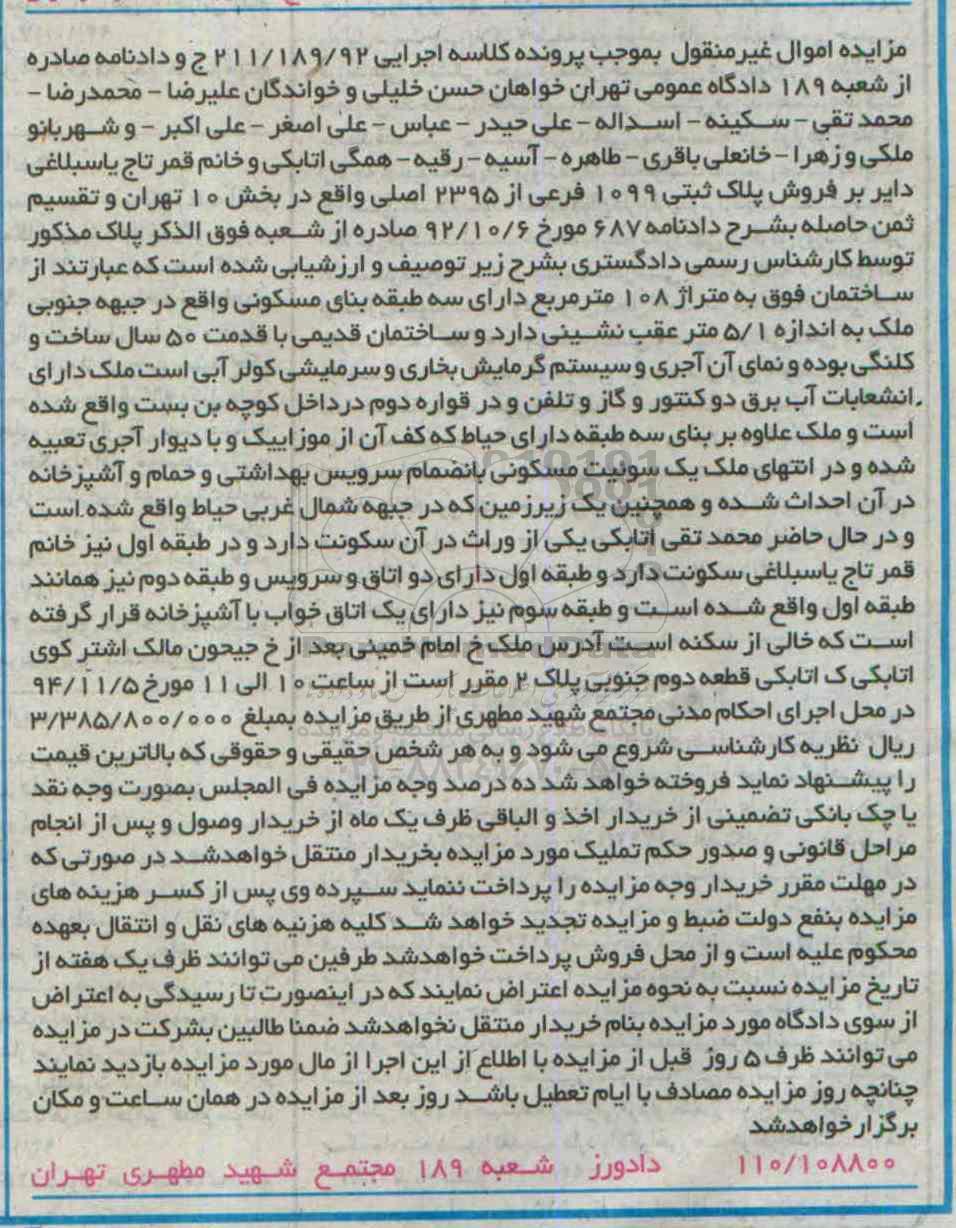 مزایده اموال غیرمنقول بموجب پرونده کلاسه اجرایی ۲۱۱/۱۸۹/۹۲ ج و دادنامه صادره
از شعبه ۱۸۹ دادگاه عمومی تهران خواهان حسن خلیلی و خواندگان علیرضا - محمدرضا -
محمد تقی - سکینه - اسداله - علی حیدر - عباس - علی اصغر - علی اکبر - و شهربانو
ملکی و زهرا - خانعلی باقری - طاهره - آسیه - رقیه - همگی اتابکی و خانم قمر تاج یاسبلاغی
دایر بر فروش پلاک ثبتی ۱۰۹۹ فرعی از ۲۳۹۵ اصلی واقع در بخش ۱۰ تهران و تقسیم
ثمن حاصله بشرح دادنامه ۶۸۷ مورخ ۹۲/۱۰/۶ صادره از شعبه فوق الذکر پلاک مذکور
توسط کارشناس رسمی دادگستری بشرح زیر توصیف و ارزشیابی شده است که عبارتند از
ساختمان فوق به متراژ ۱۰۸ مترمربع دارای سه طبقه بنای مسکونی واقع در جبهه جنوبی
ملک به اندازه ۵/۱ متر عقب نشینی دارد و ساختمان قدیمی با قدمت ۵۰ سال ساخت و
کلنگی بوده و نمای آن آجری و سیستم گرمایش بخاری و سرمایشی کولر آبی است ملک دارای
انشعابات آب برق دو کنتور و گاز و تلفن و در قواره دوم درداخل کوچه بن بست واقع شده
است و ملک علاوه بر بنای سه طبقه دارای حیاط که کف آن از موزاییک و با دیوار آجری تعبیه
شده و در انتهای ملک یک سوئیت مسکونی بانضمام سرویس بهداشتی و حمام و آشپزخانه
در آن احداث شده و همچنین یک زیرزمین که در جبهه شمال غربی حیاط واقع شده است
و در حال حاضر محمد تقی اتابکی یکی از وراث در آن سکونت دارد و در طبقه اول نیز خانم
قمر تاج یاسبلاغی سکونت دارد و طبقه اول دارای دو اتاق و سرویس و طبقه دوم نیز همانند
طبقه اول واقع شده است و طبقه سوم نیز دارای یک اتاق خواب با آشپزخانه قرار گرفته
است که خالی از سکنه است آدرس ملک خ امام خمینی بعد از خ جیحون مالک اشتر کوی
اتابکی ک اتابکی قطعه دوم جنوبی پلاک ۲ مقرر است از ساعت ۱۰ الی ۱۱ مورخ ۹۴/۱۱/۵
در محل اجرای احکام مدنی مجتمع شهید مطهری از طریق مزایده بمبلغ ۳/۳۸۵/۸۰۰/۰۰۰
ریال نظریه کارشناسی شروع می شود و به هر شخص حقیقی و حقوقی که بالاترین قیمت
را پیشنهاد نماید فروخته خواهد شد ده درصد وجه مزایده فی المجلس بصورت وجه نقد
یا چک بانکی تضمینی از خریدار اخذ و الباقی ظرف یک ماه از خریدار وصول و پس از انجام
مراحل قانونی و صدور حکم تملیک مورد مزایده بخریدار منتقل خواهدشد در صورتی که
در مهلت مقرر خریدار وجه مزایده را پرداخت ننماید سپرده وی پس از کسر هزینه های
مزایده بنفع دولت ضبط و مزایده تجدید خواهد شد کلیه هزنیه های نقل و انتقال بعهده
محکوم علیه است و از محل فروش پرداخت خواهدشد طرفین می توانند ظرف یک هفته از
تاریخ مزایده نسبت به نحوه مزایده اعتراض نمایند که در اینصورت تا رسیدگی به اعتراض
از سوی دادگاه مورد مزایده بنام خریدار منتقل نخواهدشد ضمنا طالبین بشرکت در مزایده
می توانند ظرف ۵ روز قبل از مزایده با اطلاع از این اجرا از مال مورد مزایده بازدید نمایند
چنانچه روز مزایده مصادف با ایام تعطیل باشد روز بعد از مزایده در همان ساعت و مکان
برگزار خواهدشد
۱۱۰/۱۰۸۸۰۰ دادورز شعبه ۱۸۹ مجتمع شهید مطهری تهران